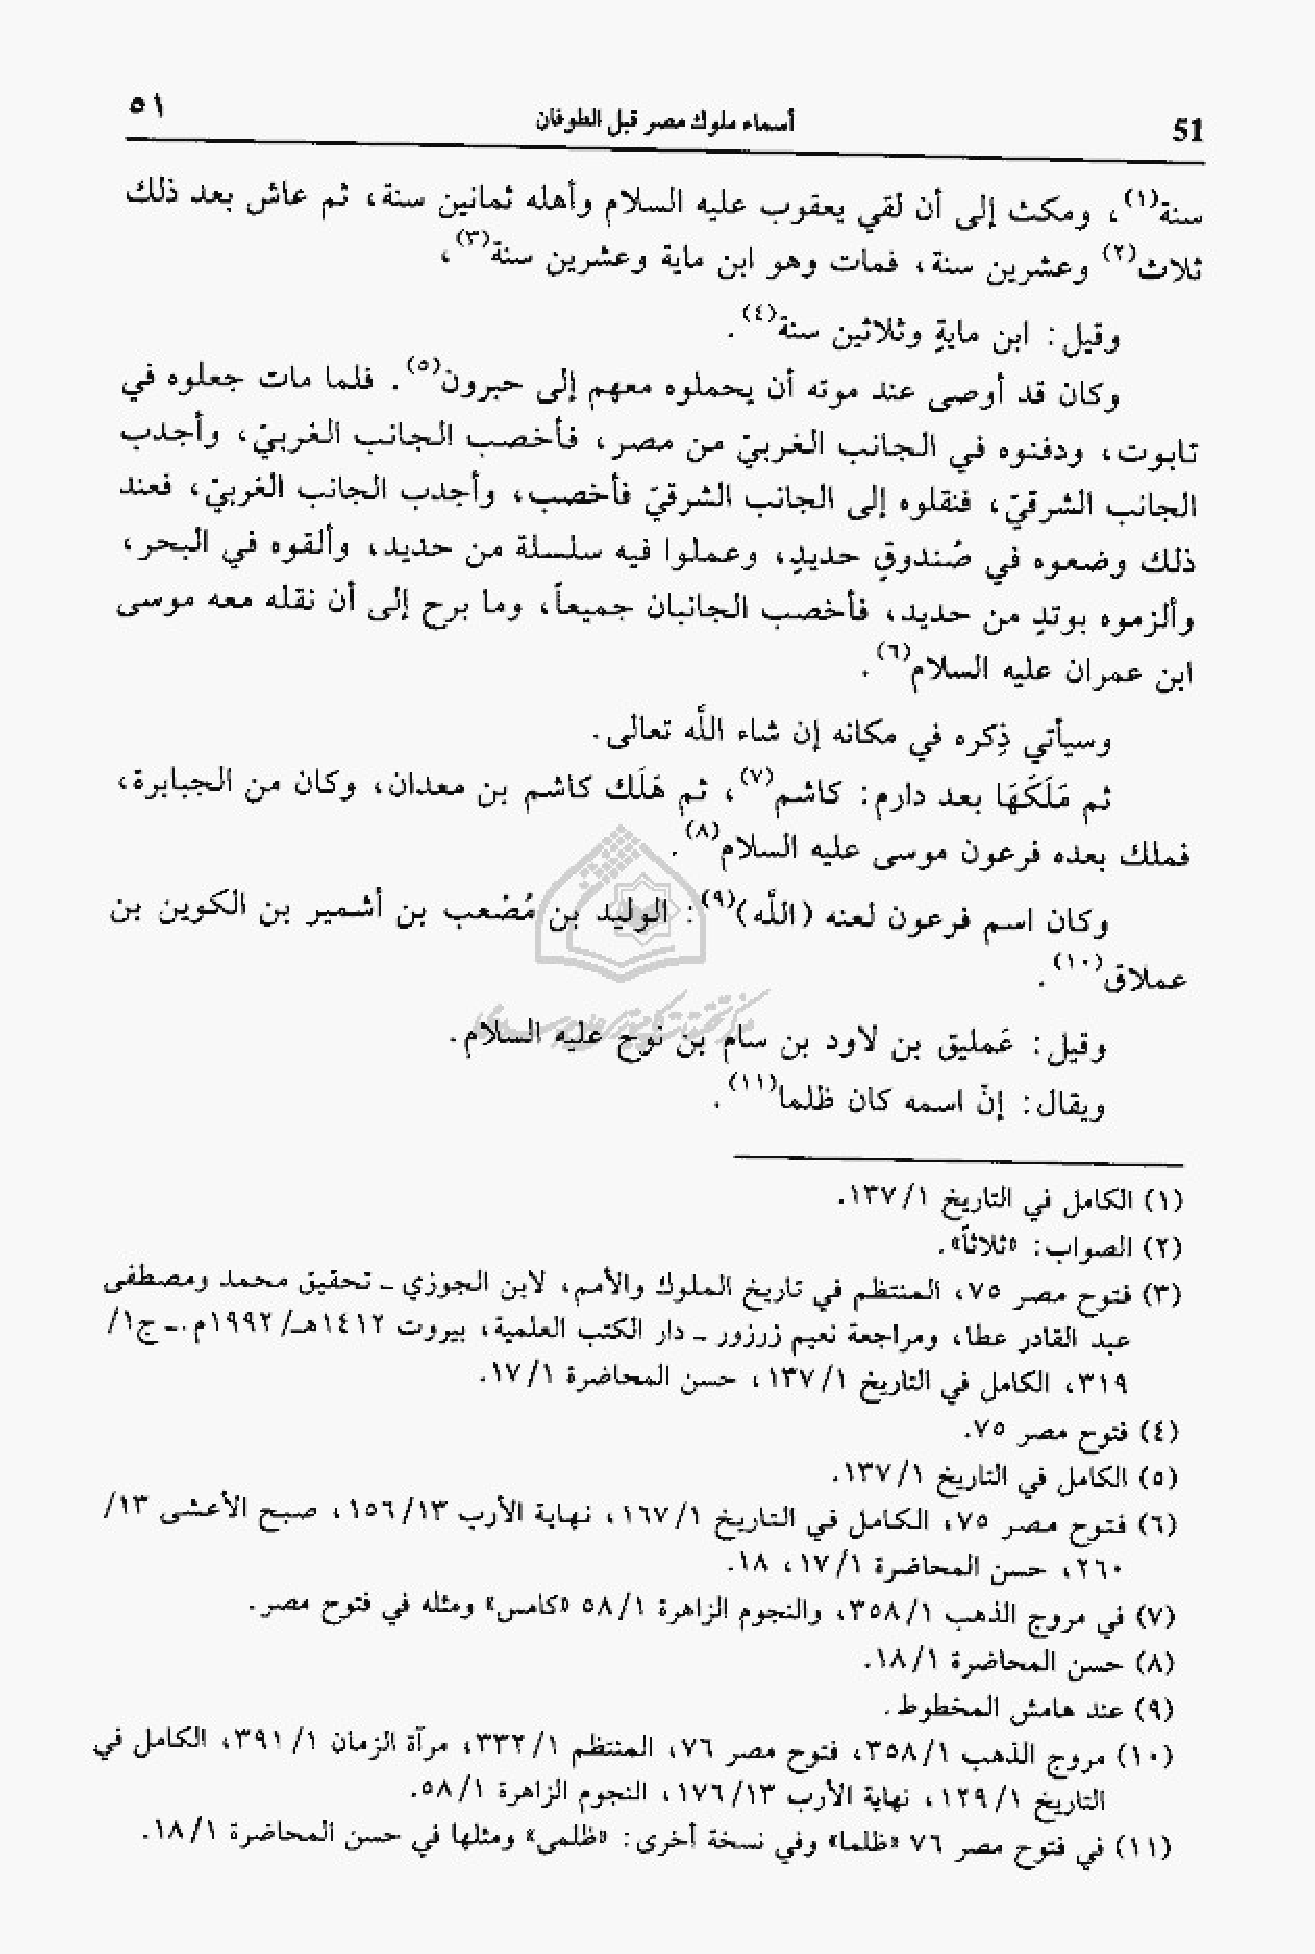 51 أسماء ملوك مصر قبل الطوفان ٥١
سنة(١)، ومكث إلى أن لقي يعقوب عليه السلام وأهله ثمانين سنة، ثم عاش بعد ذلك
ثلاث(٢) وعشرين سنة، فمات وهو ابن ماية وعشرين سنة(٣)،
وقيل: ابن مايةٍ وثلاثين سنة(٤).
وكان قد أوصى عند موته أن يحملوه معهم إلى حبرون(٥). فلما مات جعلوه في
تابوت، ودفنوه في الجانب الغربيّ من مصر، فأخصب الجانب الغربيّ، وأجدب
الجانب الشرقيّ، فنقلوه إلى الجانب الشرقيّ فأخصب، وأجدب الجانب الغربيّ، فعند
ذلك وضعوه في صُندوقِ حديدٍ، وعملوا فيه سلسلة من حديد، وألقوه في البحر،
وألزموه بوتدٍ من حديد، فأخصب الجانبان جميعاً، وما برح إلى أن نقله معه موسى
ابن عمران عليه السلام(٦).
وسيأتي ذِكره في مكانه إن شاء اللّه تعالى.
ثم مَلَكَهَا بعد دارم: كاشم(٧)، ثم هَلَك كاشم بن معدان، وكان من الجبابرة،
فملك بعده فرعون موسى عليه السلام(٨).
وكان اسم فرعون لعنه (اللّه)(٩): الوليد بن مُصْعب بن أشمير بن الكوين بن
عملاق(١٠).
وقيل: عَمليق بن لاود بن سام بن نوح عليه السلام.
ويقال: إنّ اسمه كان ظلما(١١).
(١) الكامل في التاريخ ١/ ١٣٧.
(٢) الصواب: «ثلاثاً».
(٣) فتوح مصر ٧٥، المنتظم في تاريخ الملوك والأمم، لابن الجوزي ـ تحقيق محمد ومصطفى
عبد القادر عطا، ومراجعة نعيم زرزور ـ دار الكتب العلمية، بيروت ١٤١٢هـ/ ١٩٩٢م.ـ ج١/
٣١٩، الكامل في التاريخ ١/ ١٣٧، حسن المحاضرة ١/ ١٧.
(٤) فتوح مصر ٧٥.
(٥) الكامل في التاريخ ١/ ١٣٧.
(٦) فتوح مصر ٧٥، الكامل في التاريخ ١/ ١٦٧، نهاية الأرب ١٣/ ١٥٦، صبح الأعشى ١٣/
٢٦٠، حسن المحاضرة ١/ ١٧، ١٨.
(٧) في مروج الذهب ١/ ٣٥٨، والنجوم الزاهرة ١/ ٥٨ «كامس» ومثله في فتوح مصر.
(٨) حسن المحاضرة ١/ ١٨.
(٩) عند هامش المخطوط.
(١٠) مروج الذهب ١/ ٣٥٨، فتوح مصر ٧٦، المنتظم ١/ ٣٣٢، مرآة الزمان ١/ ٣٩١، الكامل في
التاريخ ١/ ١٢٩، نهاية الأرب ١٣/ ١٧٦، النجوم الزاهرة ١/ ٥٨.
(١١) في فتوح مصر ٧٦ «ظلما» وفي نسخة أخرى: «ظلمى» ومثلها في حسن المحاضرة ١/ ١٨.